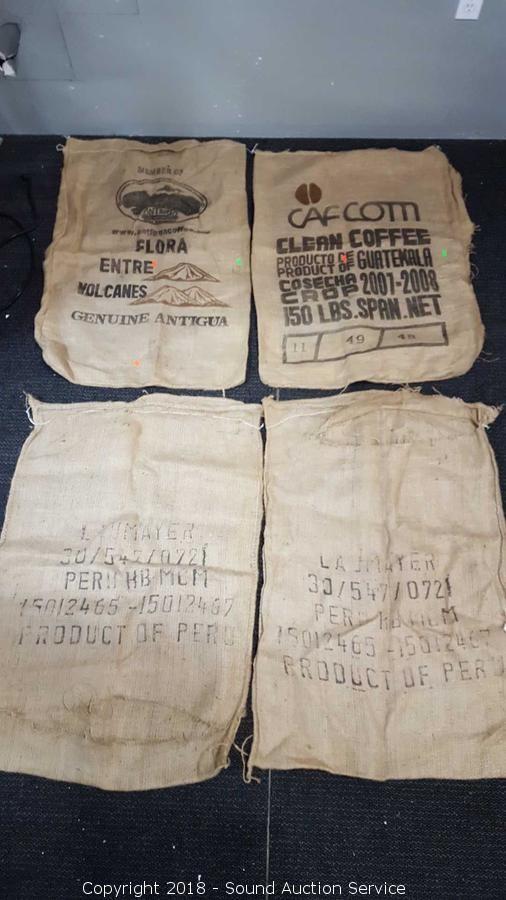 MEMBER OF
ANTIGUA
FLORA
ENTRE
VOLCANES
GENUINE ANTIGUA
CAFCOM
CLEAN COFFEE
PRODUCTO DE
PRODUCT OF GUATEMALA
COSECHA
CROP 2007-2008
150 LBS.SPAN.NET
11 49
LAUMAYER
30/547/0721
PERU HB MCM
15012465-15012467
PRODUCT OF PERU
LAUMAYER
30/547/0721
PERU HB MCM
15012465-15012467
PRODUCT OF PERU
Copyright 2018 - Sound Auction Service